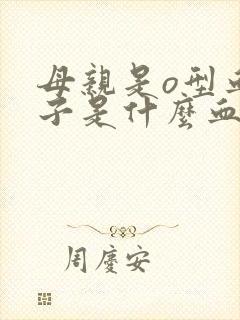 母親是o型血
子是什麼血
周慶安